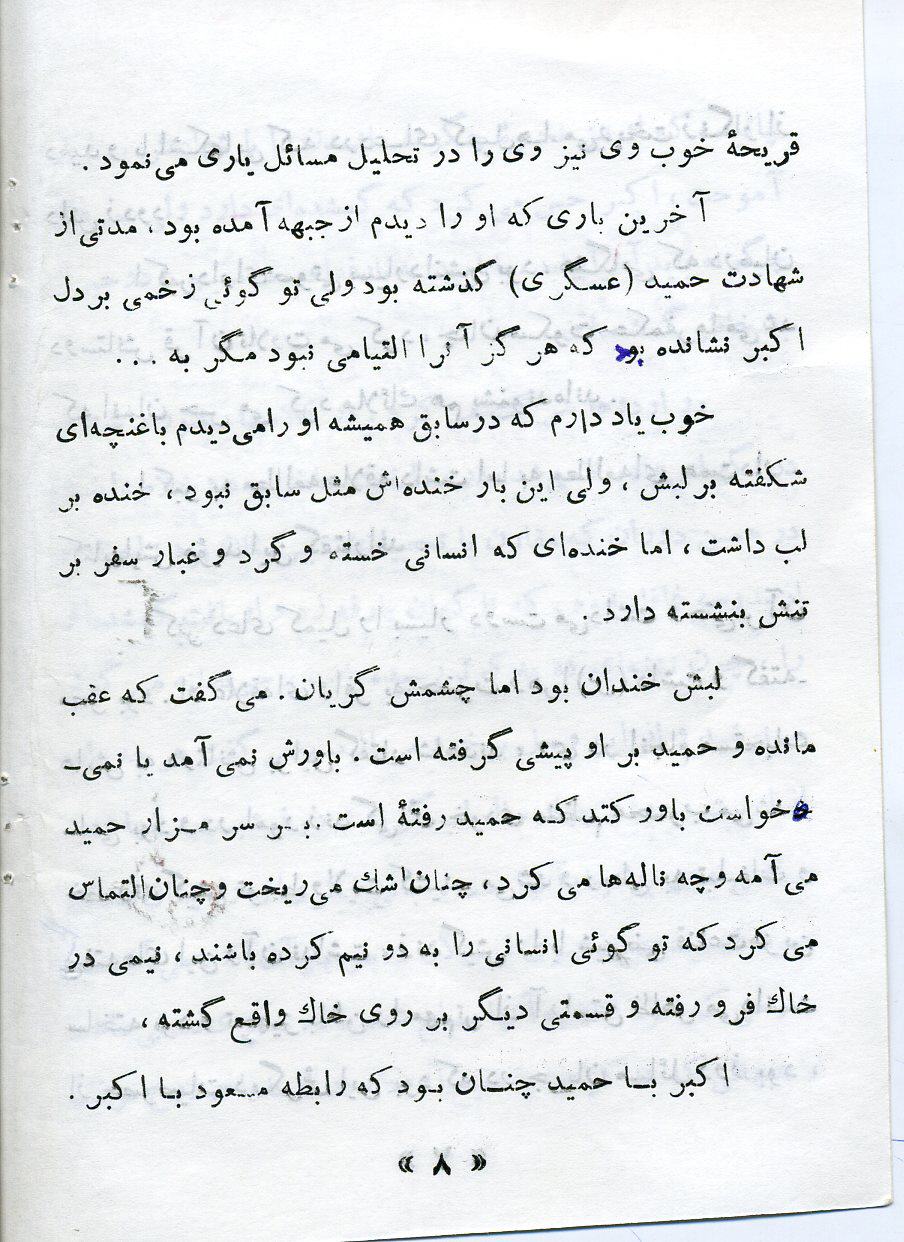 قریحهٔ خوب وی نیز وی را در تحلیل مسائل یاری می‌نمود .
آخرین باری که او را دیدم از جبهه آمده بود ، مدتی از
شهادت حمید (عسگری) گذشته بود ولی تو گوئی زخمی بر دل
اکبر نشانده بود که هرگز آنرا التیامی نبود مگر به ...
خوب یاد دارم که در سابق همیشه او را می‌دیدم با غنچه‌ای
شکفته بر لبش ، ولی این بار خنده‌اش مثل سابق نبود ، خنده بر
لب داشت ، اما خنده‌ای که انسانی خسته و گرد و غبار سفر بر
تنش بنشسته دارد .
لبش خندان بود اما چشمش گریان . می گفت که عقب
مانده و حمید بر او پیشی گرفته است . باورش نمی آمد یا نمی‌ـ
خواست باور کند کـه حمید رفتهٔ است . بـر سر مـزار حمید
می آمه و چه ناله‌ها می کرد ، چنان اشك می ریخت و چنان التماس
می کرد که تو گوئی انسانی را به دو نیم کرده باشند ، نیمی در
خاك فرو رفته و قسمتی دیگر بر روی خاك واقع گشته ،
اکبر بـا حمید چنـان بـود که رابطه مسعود بـا اکبر .
« ۸ »